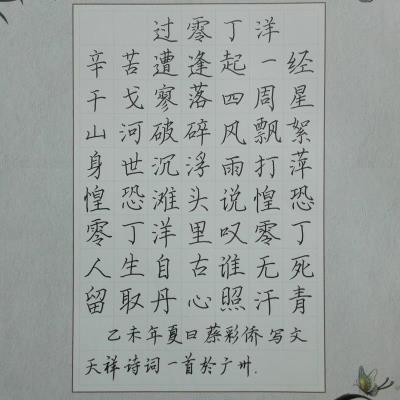 过零丁洋
辛苦遭逢起一经
干戈寥落四周星
山河破碎风飘絮
身世沉浮雨打萍
惶恐滩头说惶恐
零丁洋里叹零丁
人生自古谁无死
留取丹心照汗青
乙未年夏日蔡彩侨写文
天祥诗词一首於广州.